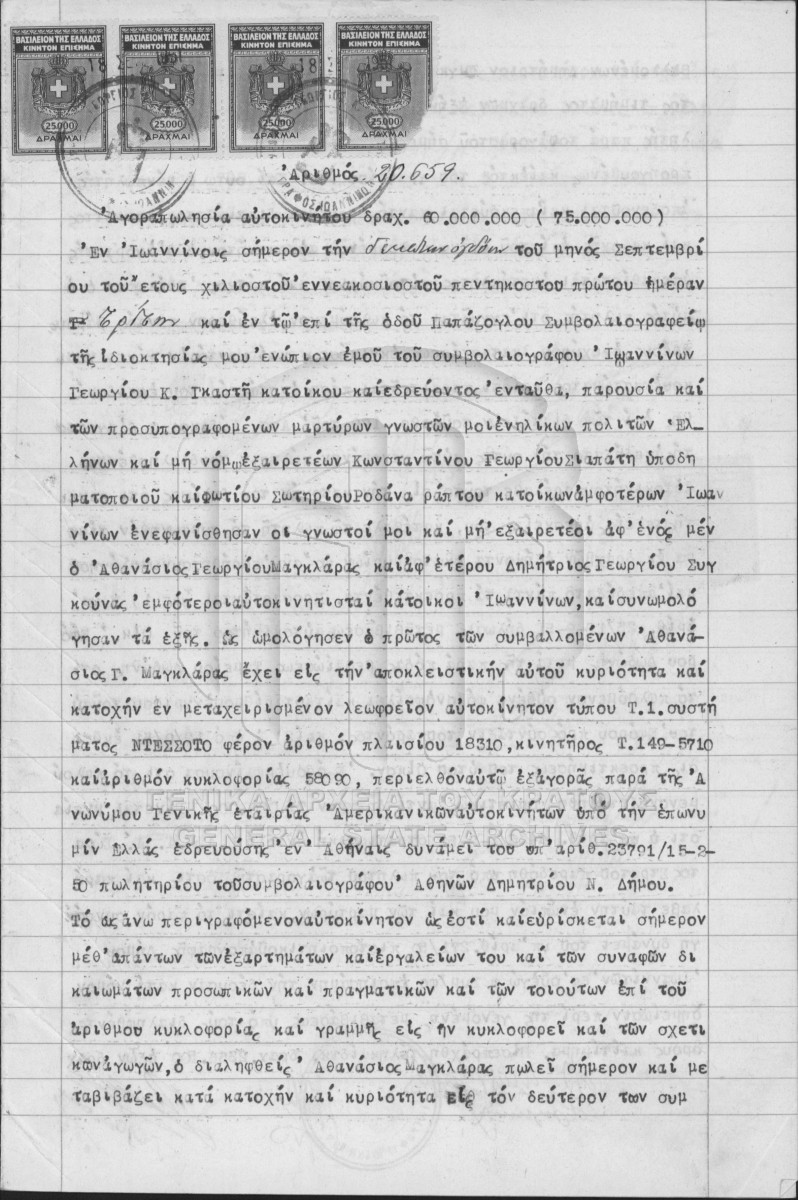 ΒΑΣΙΛΕΙΟΝ ΤΗΣ ΕΛΛΑΔΟΣ ΒΑΣΙΛΕΙΟΝ ΤΗΣ ΕΛΛΑΔΟΣ ΒΑΣΙΛΕΙΟΝ ΤΗΣ ΕΛΛΑΔΟΣ ΒΑΣΙΛΕΙΟΝ ΤΗΣ ΕΛΛΑΔΟΣ
ΚΙΝΗΤΟΝ ΕΠΙΣΗΜΑ ΚΙΝΗΤΟΝ ΕΠΙΣΗΜΑ ΚΙΝΗΤΟΝ ΕΠΙΣΗΜΑ ΚΙΝΗΤΟΝ ΕΠΙΣΗΜΑ
25.000 25.000 25.000 25.000
ΔΡΑΧΜΑΙ ΔΡΑΧΜΑΙ ΔΡΑΧΜΑΙ ΔΡΑΧΜΑΙ
Ἀριθμός 20.659.
Ἀγοραπωλησία αὐτοκινήτου δραχ. 60.000.000 ( 75.000.000)
Ἐν Ἰωαννίνοις σήμερον τήν δεκάτην ὀγδόην τοῦ μηνός Σεπτεμβρί
ου τοῦ ἔτους χιλιοστοῦ ἐννεακοσιοστοῦ πεντηκοστου πρώτου ἡμέραν
Τρίτην καί ἐν τῷ ἐπί τῆς ὁδοῦ Παπάζογλου Συμβολαιογραφείῳ
τῆς ἰδιοκτησίας μου ἐνώπιον ἐμοῦ τοῦ συμβολαιογράφου Ἰωαννίνων
Γεωργίου Κ. Γκαστῆ κατοίκου καί ἐδρεύοντος ἐνταῦθα, παρουσία καί
τῶν προσυπογραφομένων μαρτύρων γνωστῶν μοι ἐνηλίκων πολιτῶν Ἑλ-
λήνων καί μή νόμῳ ἐξαιρετέων Κωνσταντίνου Γεωργίου Σιαπάτη ὑποδη
ματοποιοῦ καί Φωτίου Σωτηρίου Ροδάνα ράπτου κατοίκων ἀμφοτέρων Ἰωαν
νίνων ἐνεφανίσθησαν οι γνωστοί μοι καί μή ἐξαιρετέοι ἀφ' ἑνός μέν
ὁ Ἀθανάσιος Γεωργίου Μαγκλάρας καί ἀφ' ἑτέρου Δημήτριος Γεωργίου Συγ
κούνας ἐμφότεροι αὐτοκινητισταί κάτοικοι Ἰωαννίνων, καί συνωμολό
γησαν τά ἑξῆς. Ὡς ὡμολόγησεν ὁ πρῶτος τῶν συμβαλλομένων Ἀθανά-
σιος Γ. Μαγκλάρας ἔχει εἰς τήν ἀποκλειστικήν αὐτοῦ κυριότητα καί
κατοχήν εν μεταχειρισμένον λεωφρεῖον αὐτοκίνητον τύπου Τ.1.συστή
ματος ΝΤΕΣΣΟΤΟ φέρον ἀριθμόν πλαισίου 18310, κινητῆρος Τ.149-5710
καί ἀριθμόν κυκλοφορίας 58090, περιελθόν αὐτῷ ἐξ ἀγορᾶς παρά τῆς Ἀ
νωνύμου Γενικῆς ἑταιρίας Ἀμερικανικῶν αὐτοκινήτων ὑπό τήν ἐπωνυ
μίν Ἑλλάς ἑδρευούσης ἐν Ἀθήναις δυνάμει του ὑπ' ἀριθ.23791/15-2-
50 πωλητηρίου τοῦ συμβολαιογράφου Ἀθηνῶν Δημητρίου Ν. Δήμου.
Τό ὡς ἄνω περιγραφόμενον αὐτοκίνητον ὡς ἐστί καί εὑρίσκεται σήμερον
μέθ' ἁπάντων τῶν ἐξαρτημάτων καί ἐργαλείων του καί τῶν συναφῶν δι
καιωμάτων προσωπικῶν καί πραγματικῶν καί τῶν τοιούτων ἐπί τοῦ
ἀριθμου κυκλοφορίας καί γραμμῆς εἰς ἥν κυκλοφορεῖ καί τῶν σχετι
κῶν ἀγωγῶν, ὁ διαληφθείς Ἀθανάσιος Μαγκλάρας πωλεῖ σήμερον καί με
ταβιβάζει κατά κατοχήν καί κυριότητα εἰς τόν δεύτερον των συμ
ΓΕΝΙΚΑ ΑΡΧΕΙΑ ΤΟΥ ΚΡΑΤΟΥΣ
GENERAL STATE ARCHIVES